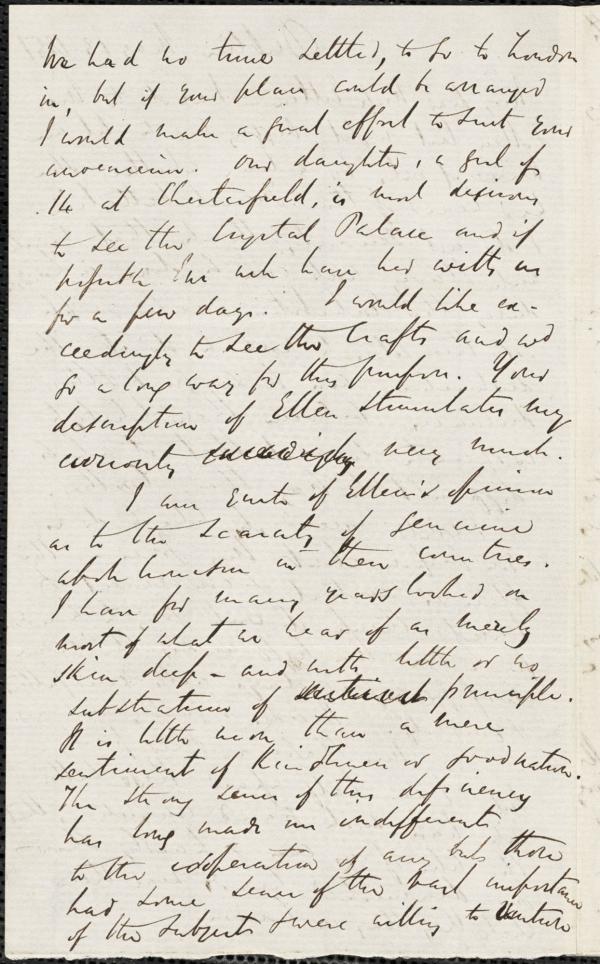 We had no time settled, to go to London
in, but if your plan could be arranged
I would make a great effort to suit your
convenience. Our daughter, a girl of
14 at Chesterfield, is most desirous
to see the Crystal Palace and if
possible I'me wish have her with us
for a few days. I would like ex-
ceedingly to see the Crafts and wd
go a long way for this purpose. Your
description of Ellen stimulates my
curiosity very much.
I am quite of Ellen's opinion
as to the scarcity of genuine
abolitionism in these countries.
I have for many years looked on
most of what we hear of as merely
skin deep - and with little or no
substratum of principle.
It is little more than a mere
sentiment of kindness or goodnature.
The strong sense of this deficiency
has long made me indifferent
to the coöperation of any but those
had some sense of the vast importance
of the subject & were willing to venture